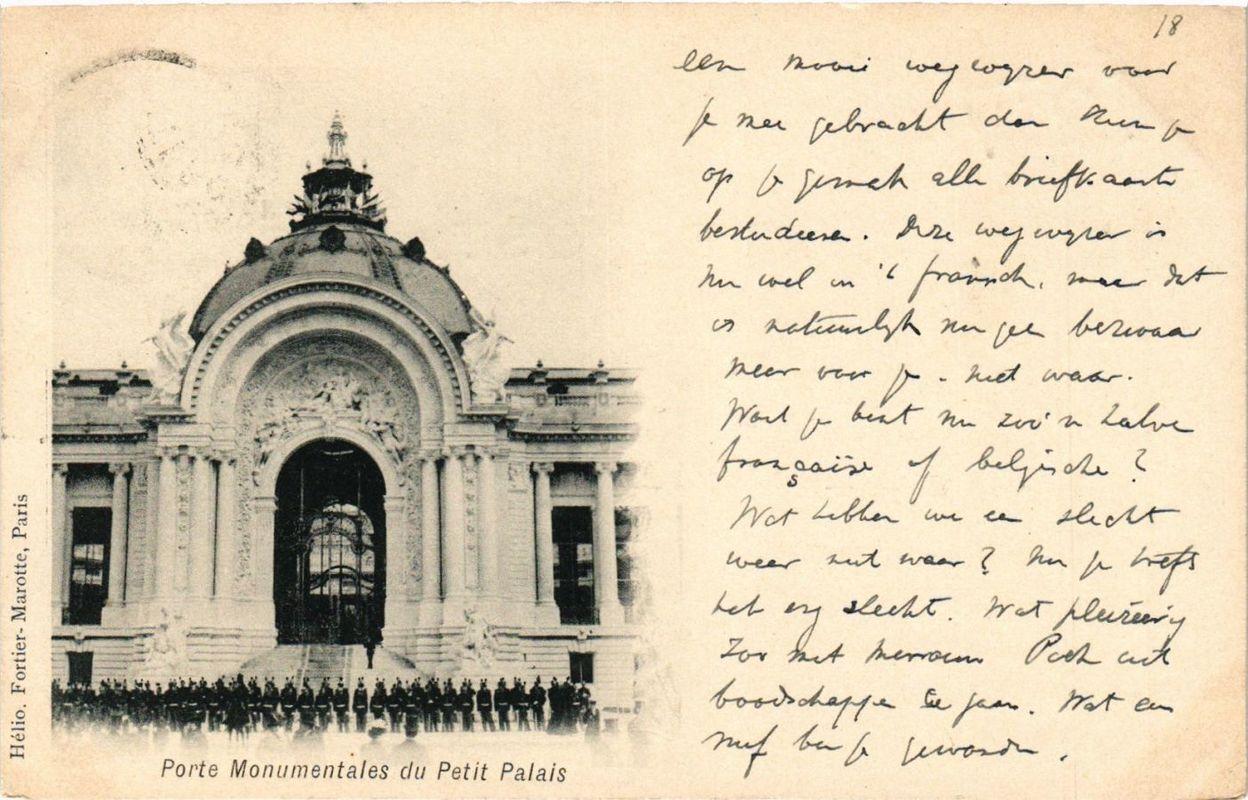 18
een mooie wegwyzer voor
je mee gebracht dan kun je
op je gemak alle briefkaarte
bestudeeren. Deze wegwyzer is
nu wel in 't fransch, maar dat
is natuurlijk nu geen bezwaar
meer voor je. niet waar.
Want je bent nu zoo'n halve
française of belgische?
Wat hebben we een slecht
weer niet waar? Nu je treft
het erg slecht. Wat pleizierig
zoo met mevrouw uit
boodschappe te gaan. Wat een
nuf ben je geworden.
Hélio. Fortier-Marotte, Paris
Porte Monumentales du Petit Palais